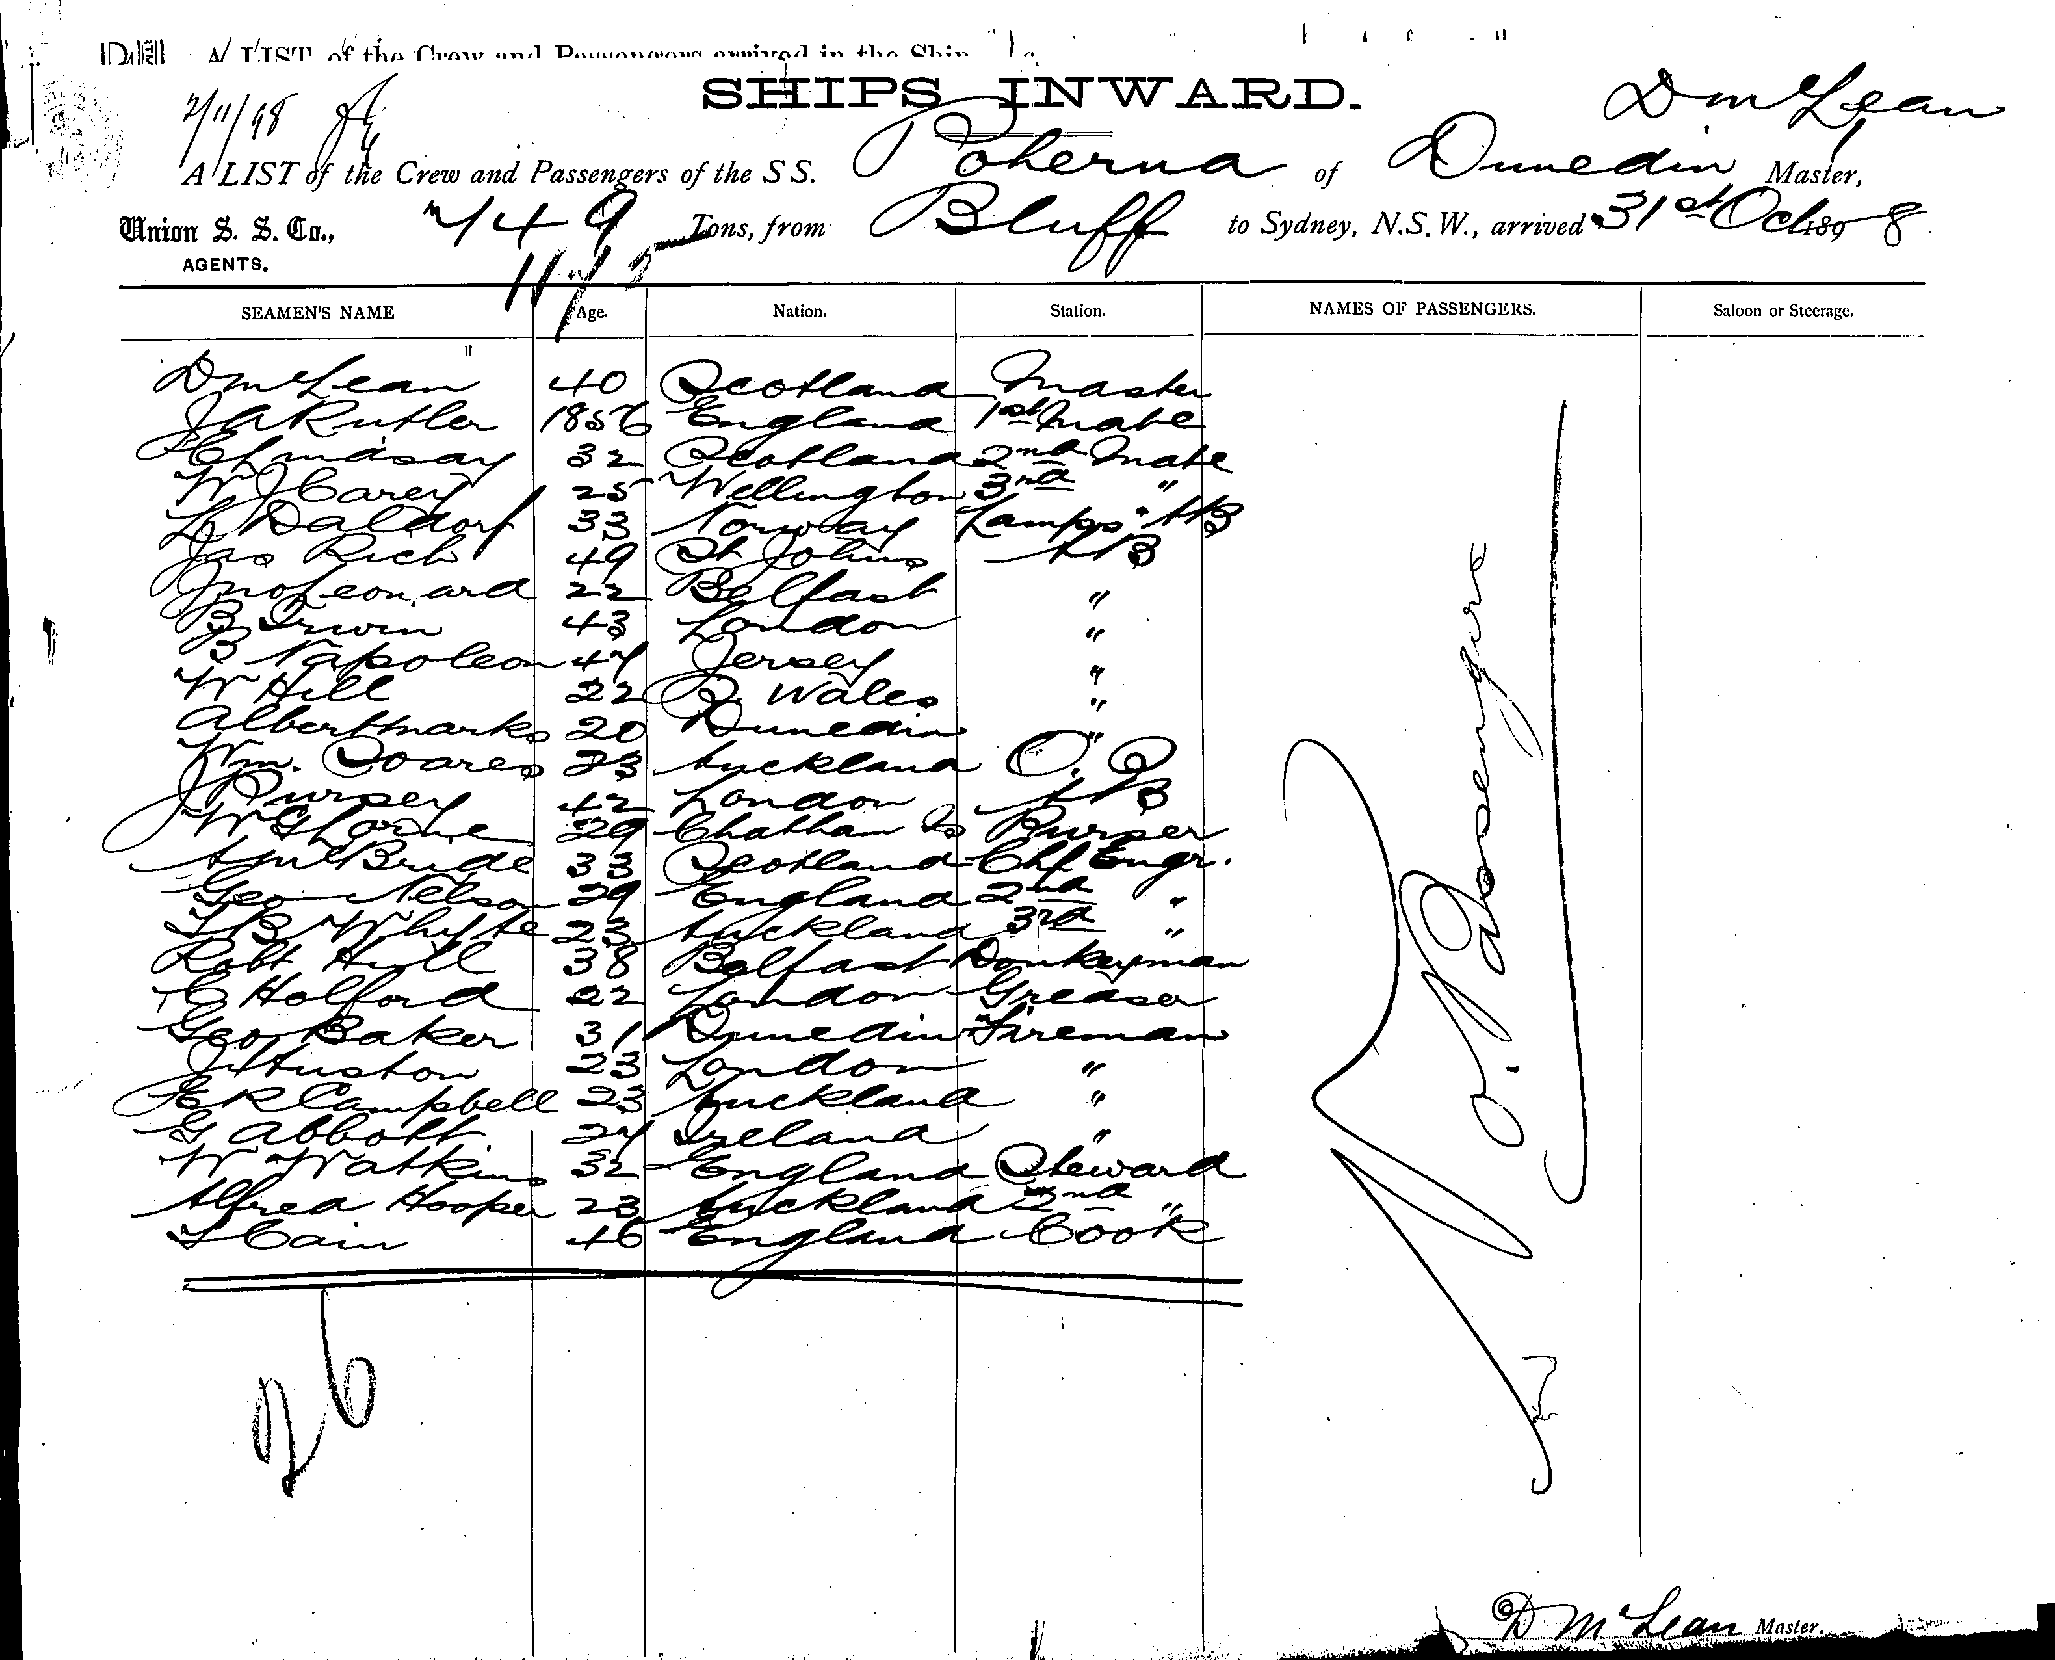 A LIST of the Crew and Passengers arrived in the Ship
SHIPS INWARD.
2/11/98
D McLean
A LIST of the Crew and Passengers of the S S. Poherua of Dunedin Master,
Union S. S. Co., 749 Tons, from Bluff to Sydney, N.S.W., arrived 31st Oct 1898
AGENTS. 1175
SEAMEN'S NAME Age. Nation. Station. NAMES OF PASSENGERS. Saloon or Steerage.
D McLean 40 Scotland Master
J A Rutler 1856 England 1st Mate
Lindsay 32 Scotland 2nd Mate
W J Carey 25 Wellington 3rd "
L Daldorf 33 Norway Lamps & AB
Jas Rich 49 St Johns AB
Jno Leonard 22 Belfast "
B Irwin 43 London "
B Napoleon 47 Jersey "
W Hill 22 S. Wales "
Albert Marks 20 Dunedin "
Wm. Soares 23 Auckland O. S
J Pursey 42 London AB
W G Lorne 29 Chatham Is Purser
A McBride 33 Scotland Chf Engr.
Geo Nelson 29 England 2nd "
T B Whyte 23 Auckland 3rd "
Robt Hull 38 Belfast Donkeyman
C Holford 22 London Greaser
Geo Baker 31 Dunedin Fireman
J Huston 23 London "
E R Campbell 23 Auckland "
G Abbott 27 Ireland "
W Watkins 32 England Steward
Alfred Hooper 23 Auckland 2nd "
T Cain 46 England Cook
26
No. Passengers
D McLean Master.